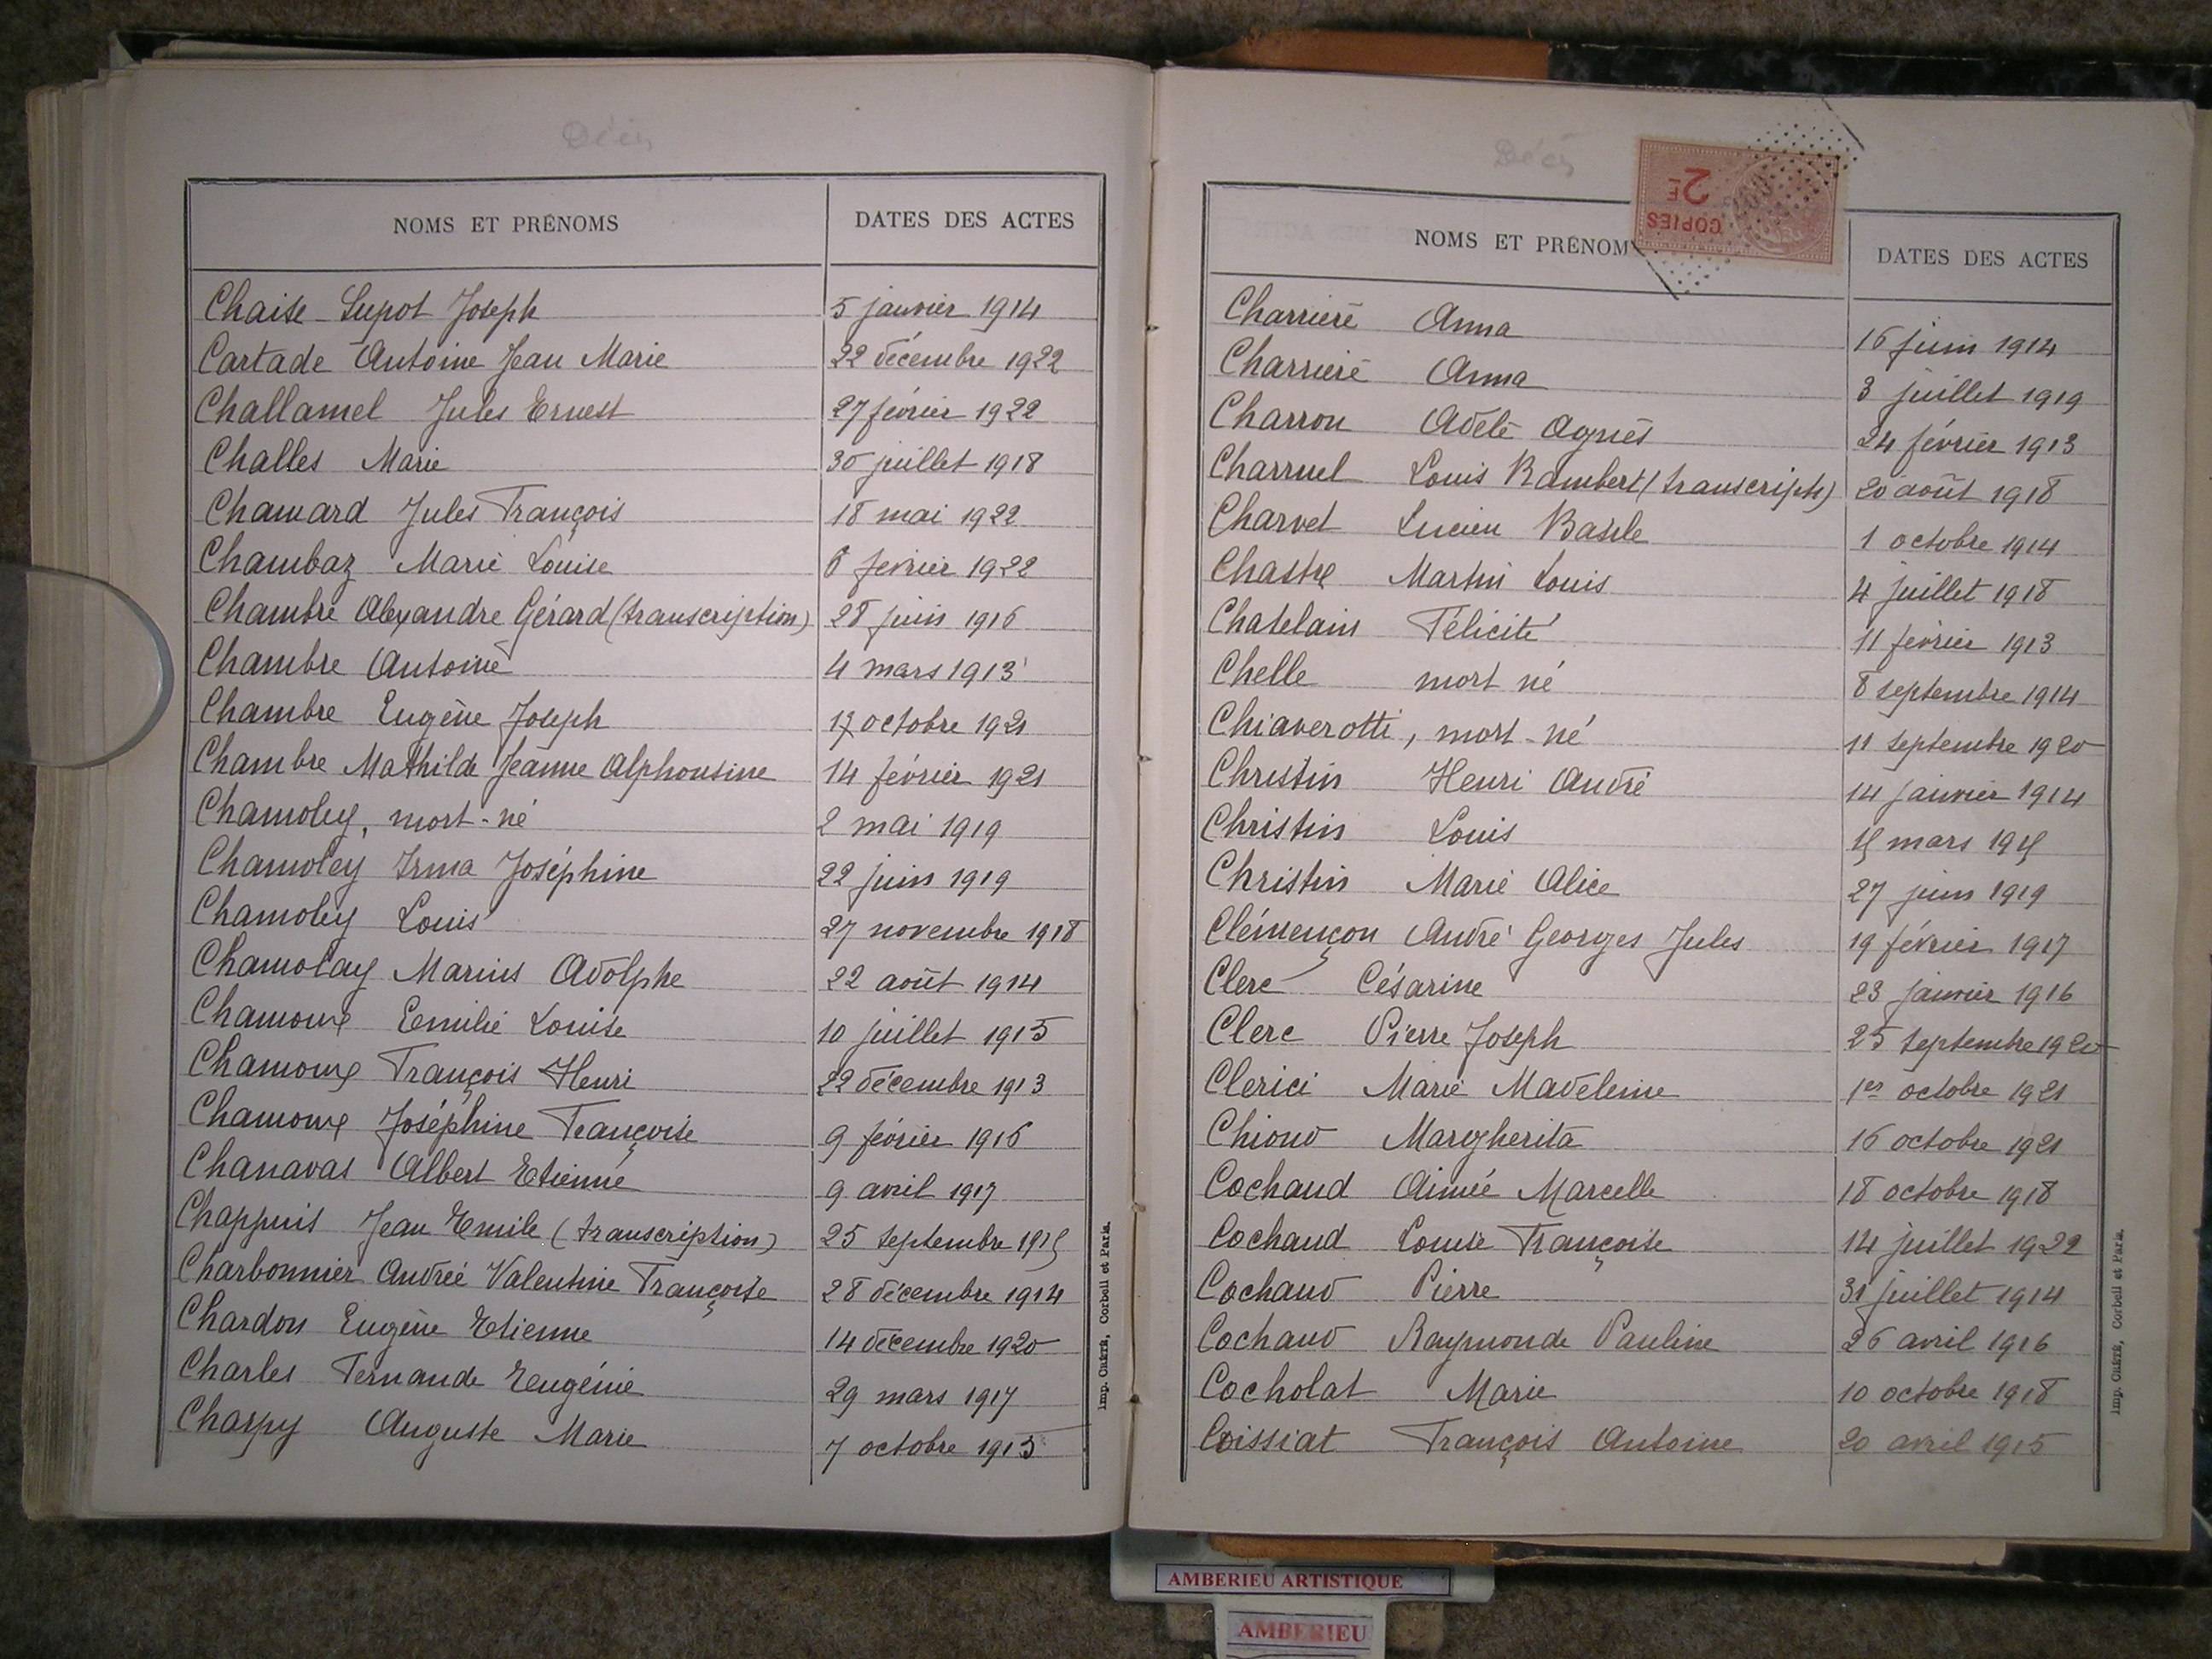 Décès
NOMS ET PRÉNOMS DATES DES ACTES
Chaise-Lupot Joseph 5 janvier 1914
Cartade Antoine Jean Marie 22 décembre 1922
Challamel Jules Ernest 27 février 1922
Challes Marie 30 juillet 1918
Chamard Jules François 18 mai 1922
Chambaz Marie Louise 6 février 1922
Chambre Alexandre Gérard (transcription) 28 juin 1916
Chambre Antoine 4 mars 1913
Chambre Eugène Joseph 17 octobre 1921
Chambre Mathilde Jeanne Alphonsine 14 février 1921
Chamoley, mort-né 2 mai 1919
Chamoley Irma Joséphine 22 juin 1919
Chamoley Louis 27 novembre 1918
Chamolay Marius Adolphe 22 août 1914
Chamoux Emilie Louise 10 juillet 1915
Chamoux François Henri 22 décembre 1913
Chamoux Joséphine Françoise 9 février 1916
Chanavat Albert Etienne 9 avril 1917
Chappuis Jean Emile (transcription) 25 septembre 1915
Charbonnier Andrée Valentine Françoise 28 décembre 1914
Chardon Eugène Etienne 14 décembre 1920
Charles Fernande Eugénie 29 mars 1917
Charpy Auguste Marie 7 octobre 1915
Imp. Crété, Corbeil et Paris.
Décès
COPIES
2F
NOMS ET PRÉNOM DATES DES ACTES
Charrière Anna 16 juin 1914
Charrière Anna 3 juillet 1919
Charron Adèle Agnès 24 février 1913
Charruel Louis Rambert (transcript) 20 août 1918
Charvet Lucien Basile 1 octobre 1914
Chastre Martin Louis 4 juillet 1918
Chatelain Félicité 11 février 1913
Chelle mort né 8 septembre 1914
Chiaverotti, mort-né 11 septembre 1920
Christin Henri André 14 janvier 1914
Christin Louis 15 mars 1915
Christin Marie Alice 27 juin 1919
Clémençon André Georges Jules 19 février 1917
Clerc Césarine 23 janvier 1916
Clerc Pierre Joseph 25 septembre 1920
Clerici Marie Madeleine 1er octobre 1921
Chiono Margherita 16 octobre 1921
Cochaud Aimée Marcelle 18 octobre 1918
Cochaud Louise Françoise 14 juillet 1922
Cochaud Pierre 31 juillet 1914
Cochaud Raymonde Pauline 26 avril 1916
Cocholat Marie 10 octobre 1918
Coissiat François Antoine 20 avril 1915
Imp. Crété, Corbeil et Paris.
AMBERIEU ARTISTIQUE
AMBERIEU